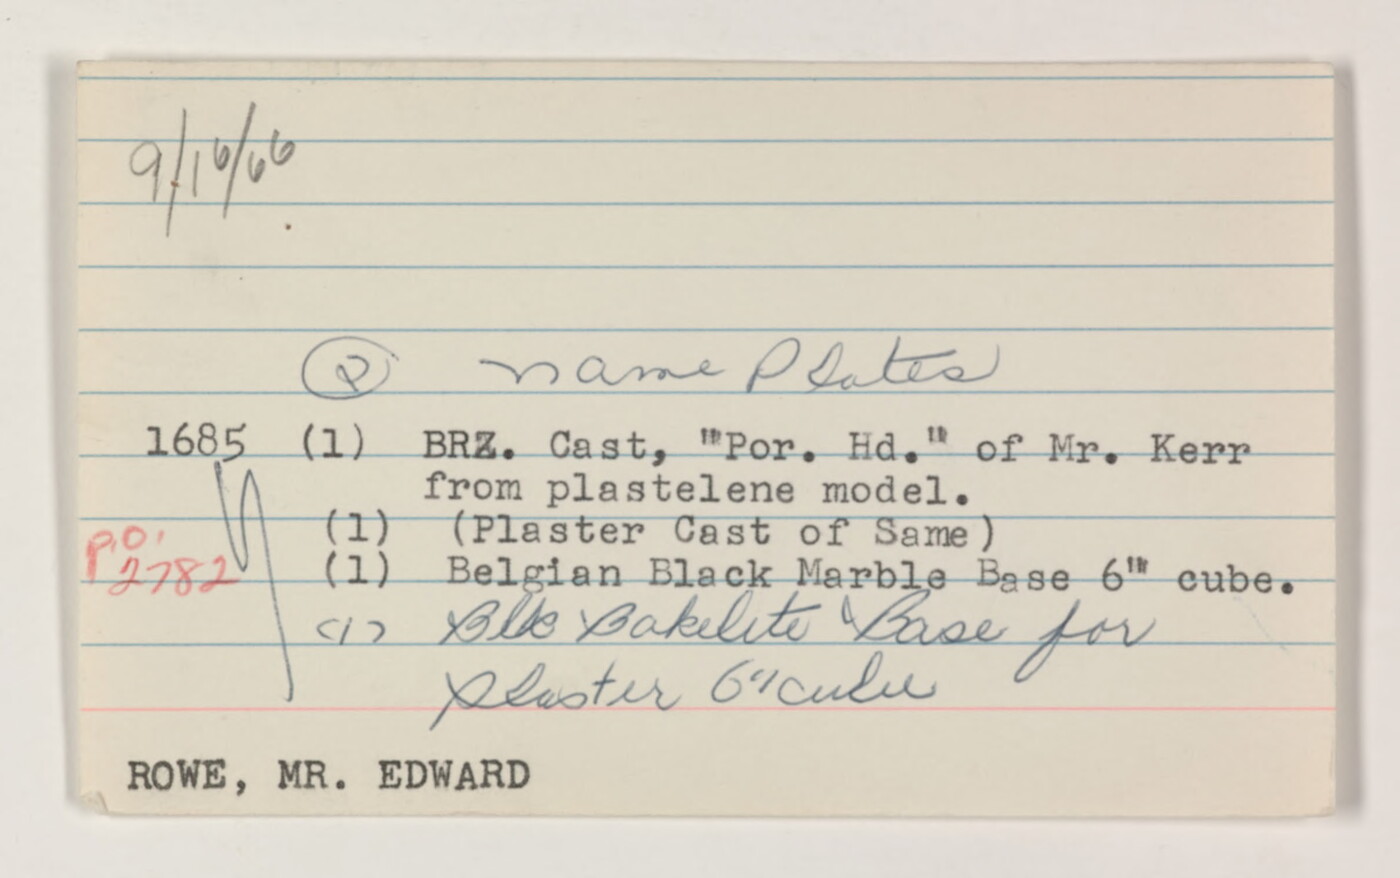 9/16/66
2 name Plates
1685 (1) BRZ. Cast, "Por. Hd." of Mr. Kerr
from plastelene model.
(1) (Plaster Cast of Same)
P.O. 2782
(1) Belgian Black Marble Base 6" cube.
(1) Blk Bakelite Base for
plaster 6" cube
ROWE, MR. EDWARD